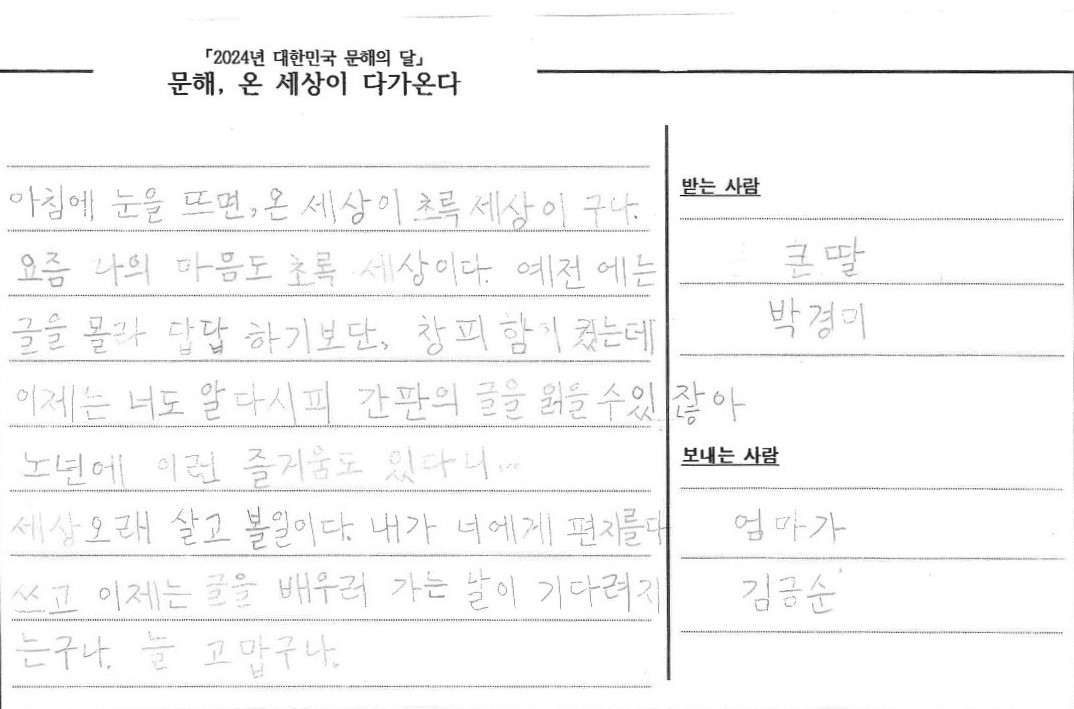 「2024년 대한민국 문해의 달」
문해, 온 세상이 다가온다
아침에 눈을 뜨면, 온 세상이 초록 세상이 구나.
요즘 나의 마음도 초록 세상이다. 예전 에는
글을 몰라 답답 하기보단, 창피 함기 켰는데
이제는 너도 알다시피 간판의 글을 읽을 수있 잖아
노년에 이런 즐거움도 있다니...
세상오래 살고 볼일이다. 내가 너에게 편지를다
쓰고 이제는 글을 배우러 가는 날이 기다려지
는구나. 늘 고맙구나.
받는 사람
큰 딸
박경미
보내는 사람
엄마가
김금순